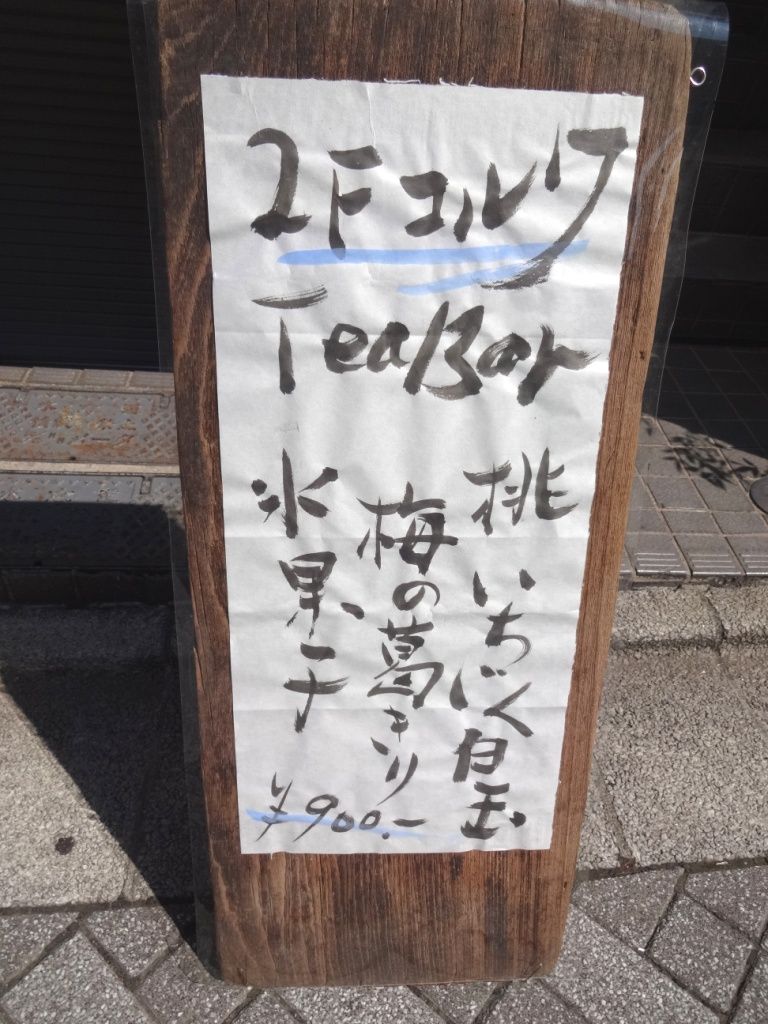 2Fコルク
TeaBar
桃いちじく白玉
梅の葛きり
水果子
¥900.ー